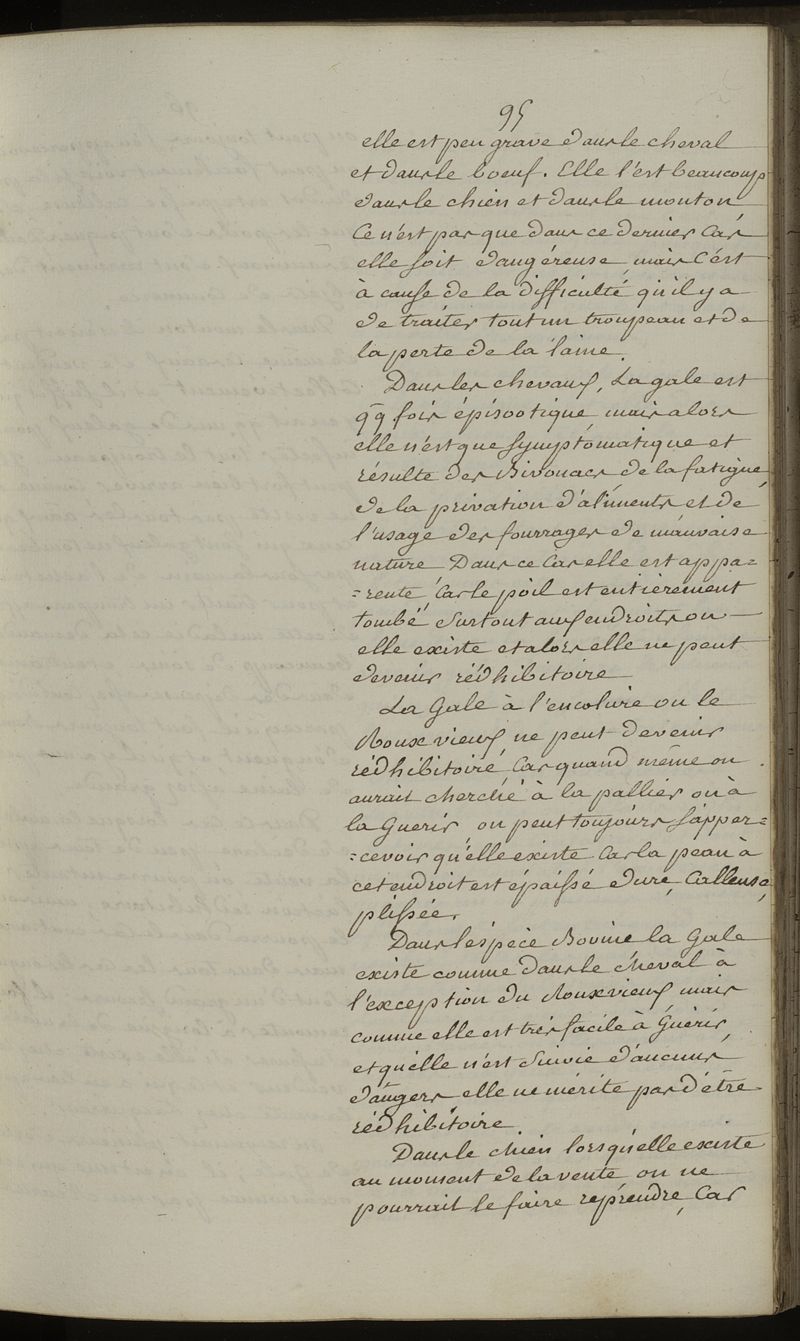 95
elle est peu grave dans le cheval
et dans le boeuf. Elle l'est beaucoup
dans le chien et dans le mouton
Ce n'est pas que dans ce dernier Cas
elle soit dangéreuse, mais c'est
à cause de la difficulté qu'il y a
de traiter tout un troupeau et de
la perte de la laine.
Dans les chevaux, La gale est
qq fois épisootique, mais alors
elle n'est que symptômatique et
résulte des Bivouacs de la fatigue,
de la privation d'aliments et de
l'usage des fourrages de mauvaise
nature. Dans ce Cas elle est appa=
=rente, Car le poil est entièrement
tombé surtout aux endroits ou
elle existe et alors elle ne peut
devenir rédhibitoire
La Gale à l'encolure ou le
Rouxvieux ne peut devenir
rédhibitoire, Car quand même on
aurait cherché à la pallier ou à
la Guerir, on peut toujours s'apper=
=cevoir qu'elle existe Car la peau à
cet endroit est épaissé dure, Calleuse,
plissée.
Dans l'espèce Bovine la Gale
existe comme dans le cheval à
l'exception du Rouxvieux, mais
comme elle est très facile à Guérir,
et quelle n'est suivie d'aucuns
dangers elle ne mérite pas d'être
rédhibitoire.
Dans le chien lorsqu'elle existe
au moment de la vente on ne
pourrait le faire reprendre, Car